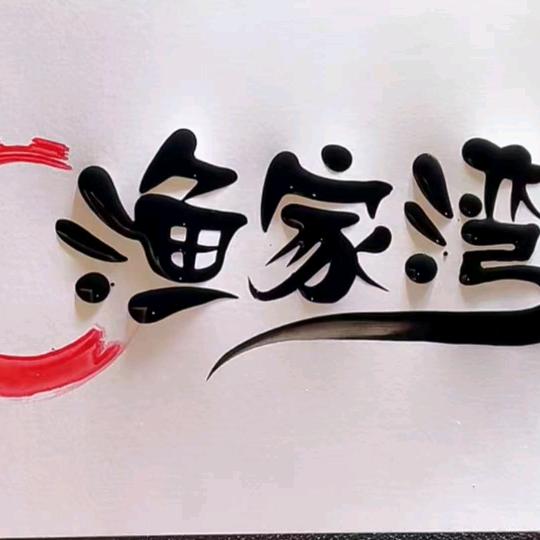 渔家湾